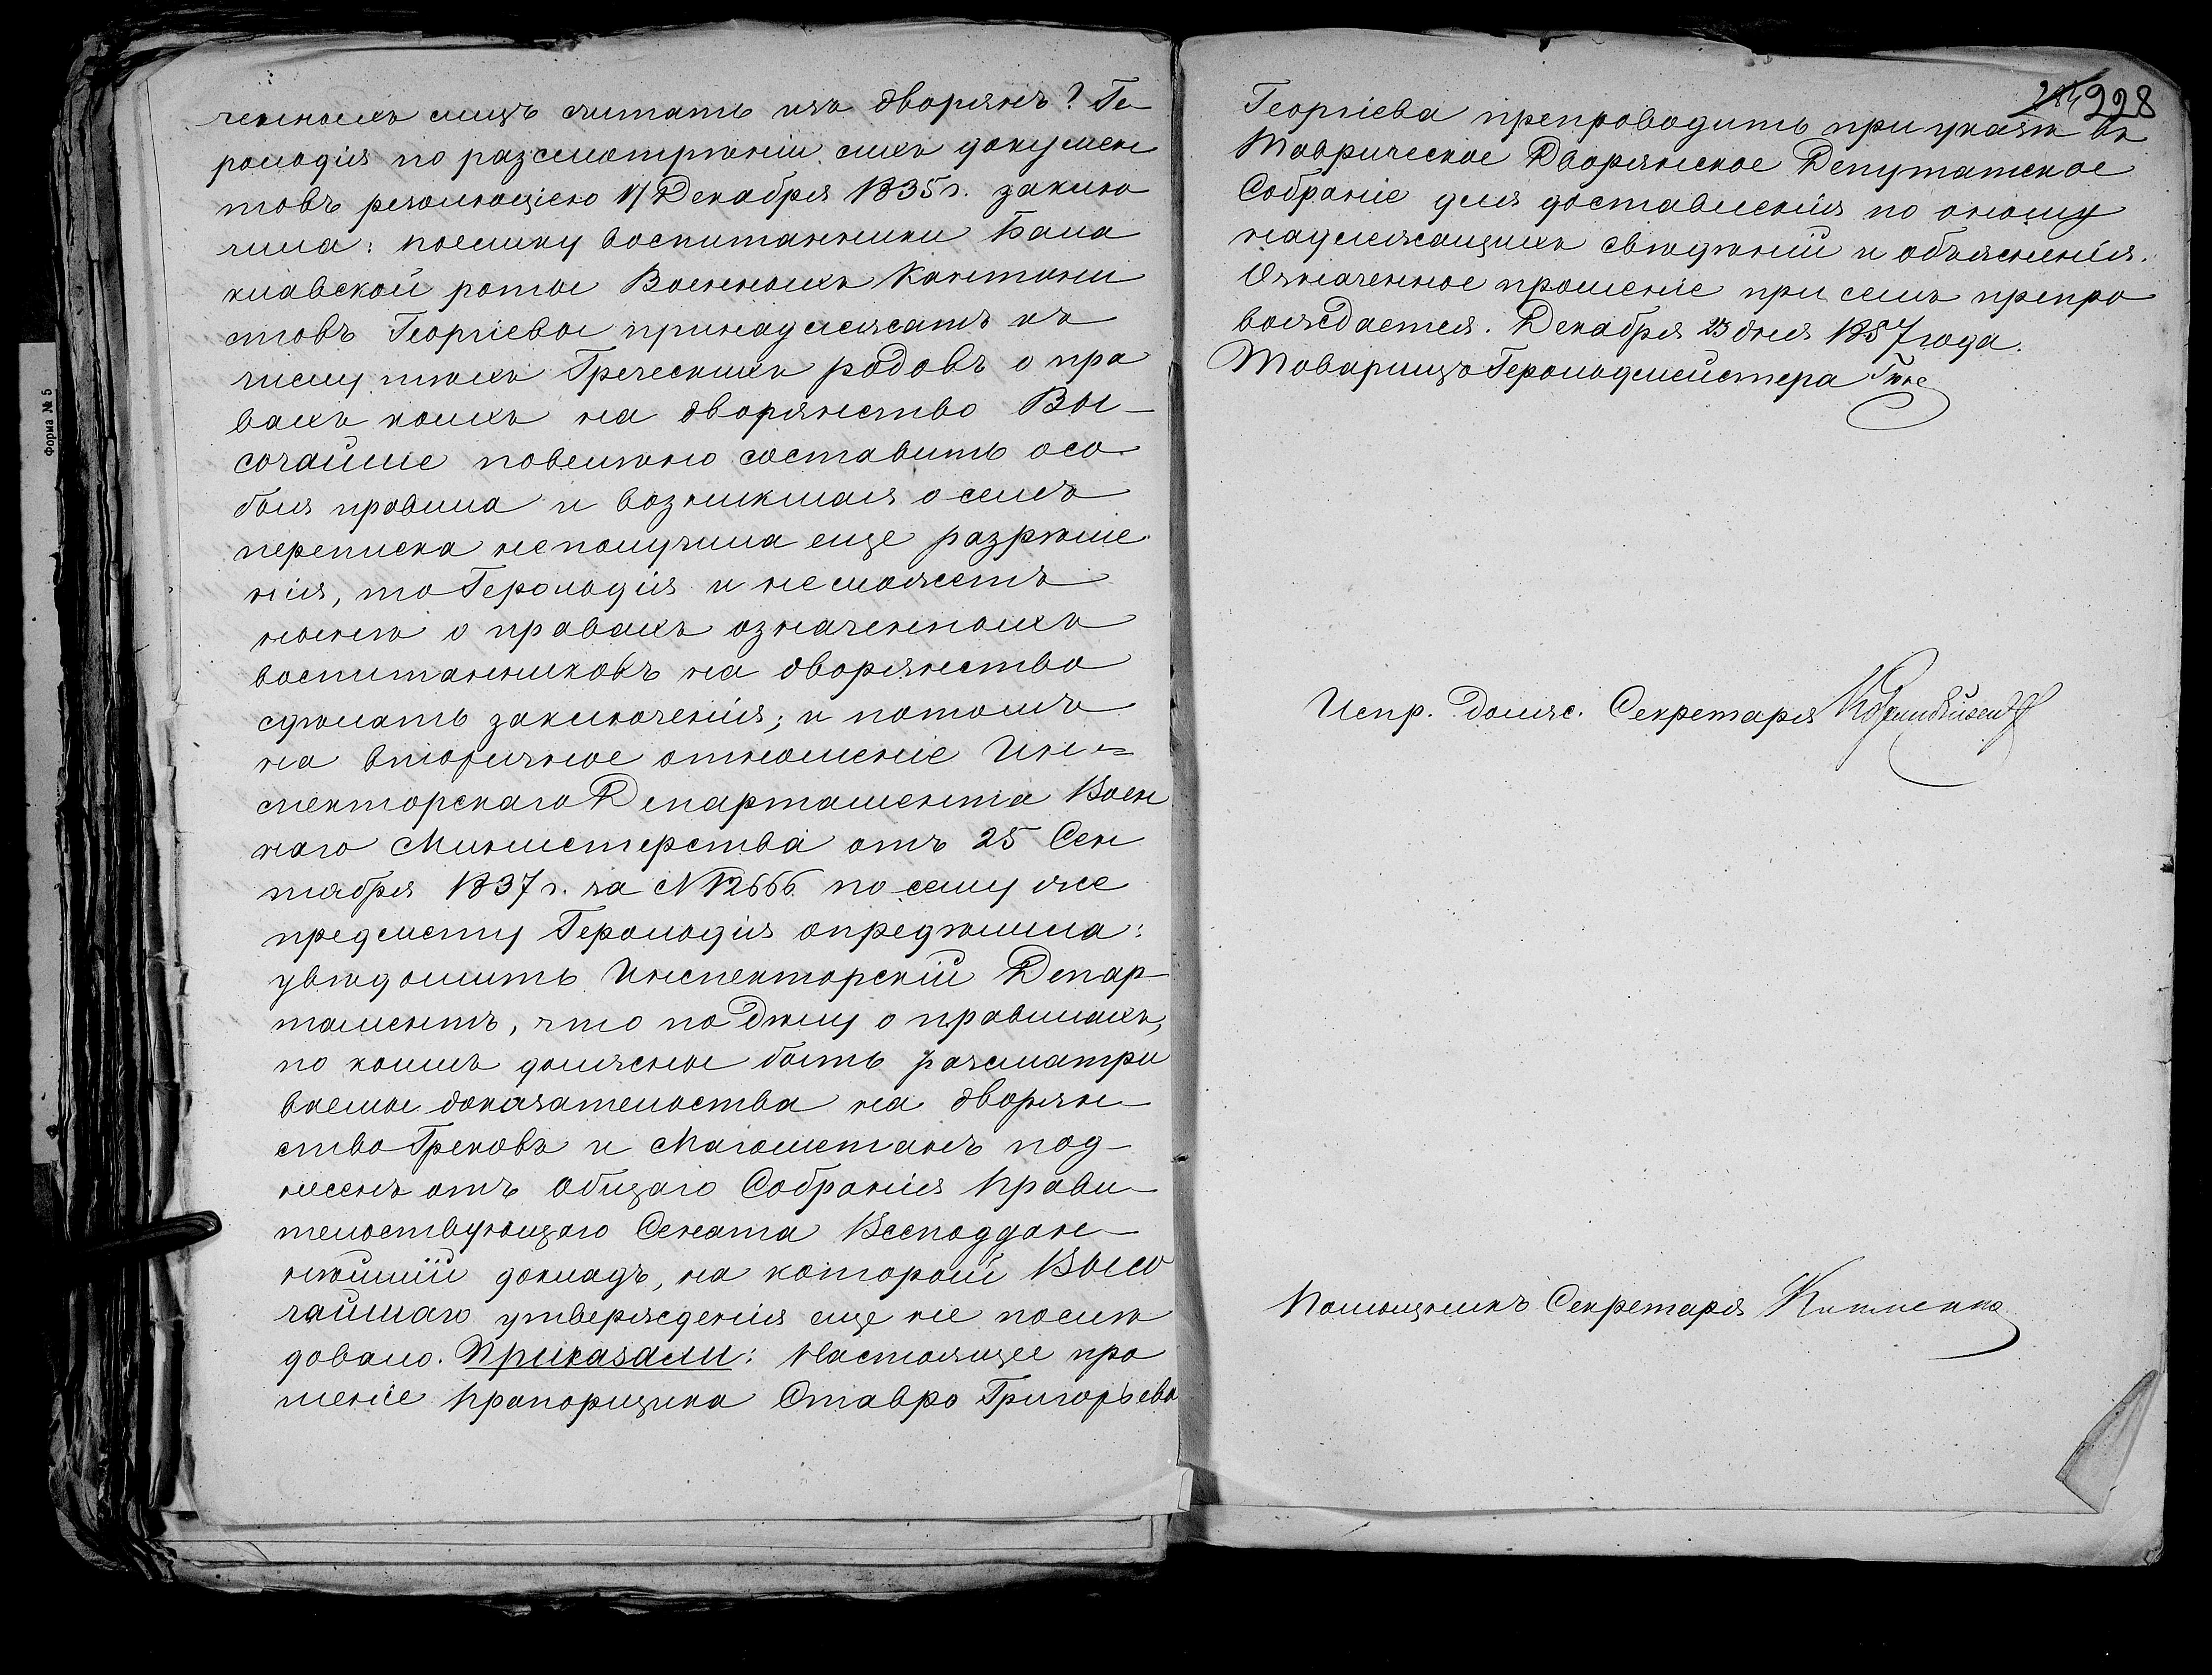 ченныхъ лицъ считать изъ дворянъ? Ге-
рольдія по разсмотрѣніи сихъ докумен
товъ резолюціею 17 Декабря 1835 г. заклю
чила: поелику воспитанники Бала
клавской роты Военныхъ Кантони
стовъ Георгіевы принадлежатъ къ
числу тѣхъ Греческихъ родовъ о пра
вахъ коихъ на дворянство Вы-
сочайше повелѣно составить осо
быя правила и возникшая о семъ
переписка неполучила еще разрѣше
нія, то Герольдія и неможетъ
нынѣ о правахъ означенныхъ
воспитанниковъ на дворянство
сдѣлать заключенія; и потомъ
на вторичное отношеніе Ин=
спекторскаго Департамента Воен
наго Министерства отъ 25 Сен
тября 1837 г. за N 12666 по сему же
предмету Герольдія опредѣлила:
увѣдомить Инспекторскій Депар-
таментъ, что по Дѣлу о правилахъ,
по коимъ должны быть разсматри
ваемы доказательства на дворян-
ство Грековъ и Магометанъ под-
несенъ отъ Общаго Собранія Прави-
тельствующаго Сената Всеподдан-
нѣйшій докладъ, на который Высо
чайшаго утвержденія еще не послѣ
довало. Приказали: Настоящее про
шеніе Прапорщика Ставро Григорьева
228
Георгіева препроводить при указѣ въ
Таврическое Дворянское Депутатское
Собраніе для доставленія по оному
надлежащихъ свѣдѣній и объясненія.
Означенное прошеніе при семъ препро
вождается. Декабря 23 дня 1837 года.
Товарищъ Герольдмейстера
Испр. Должн. Секретаря
Помощникъ Секретаря